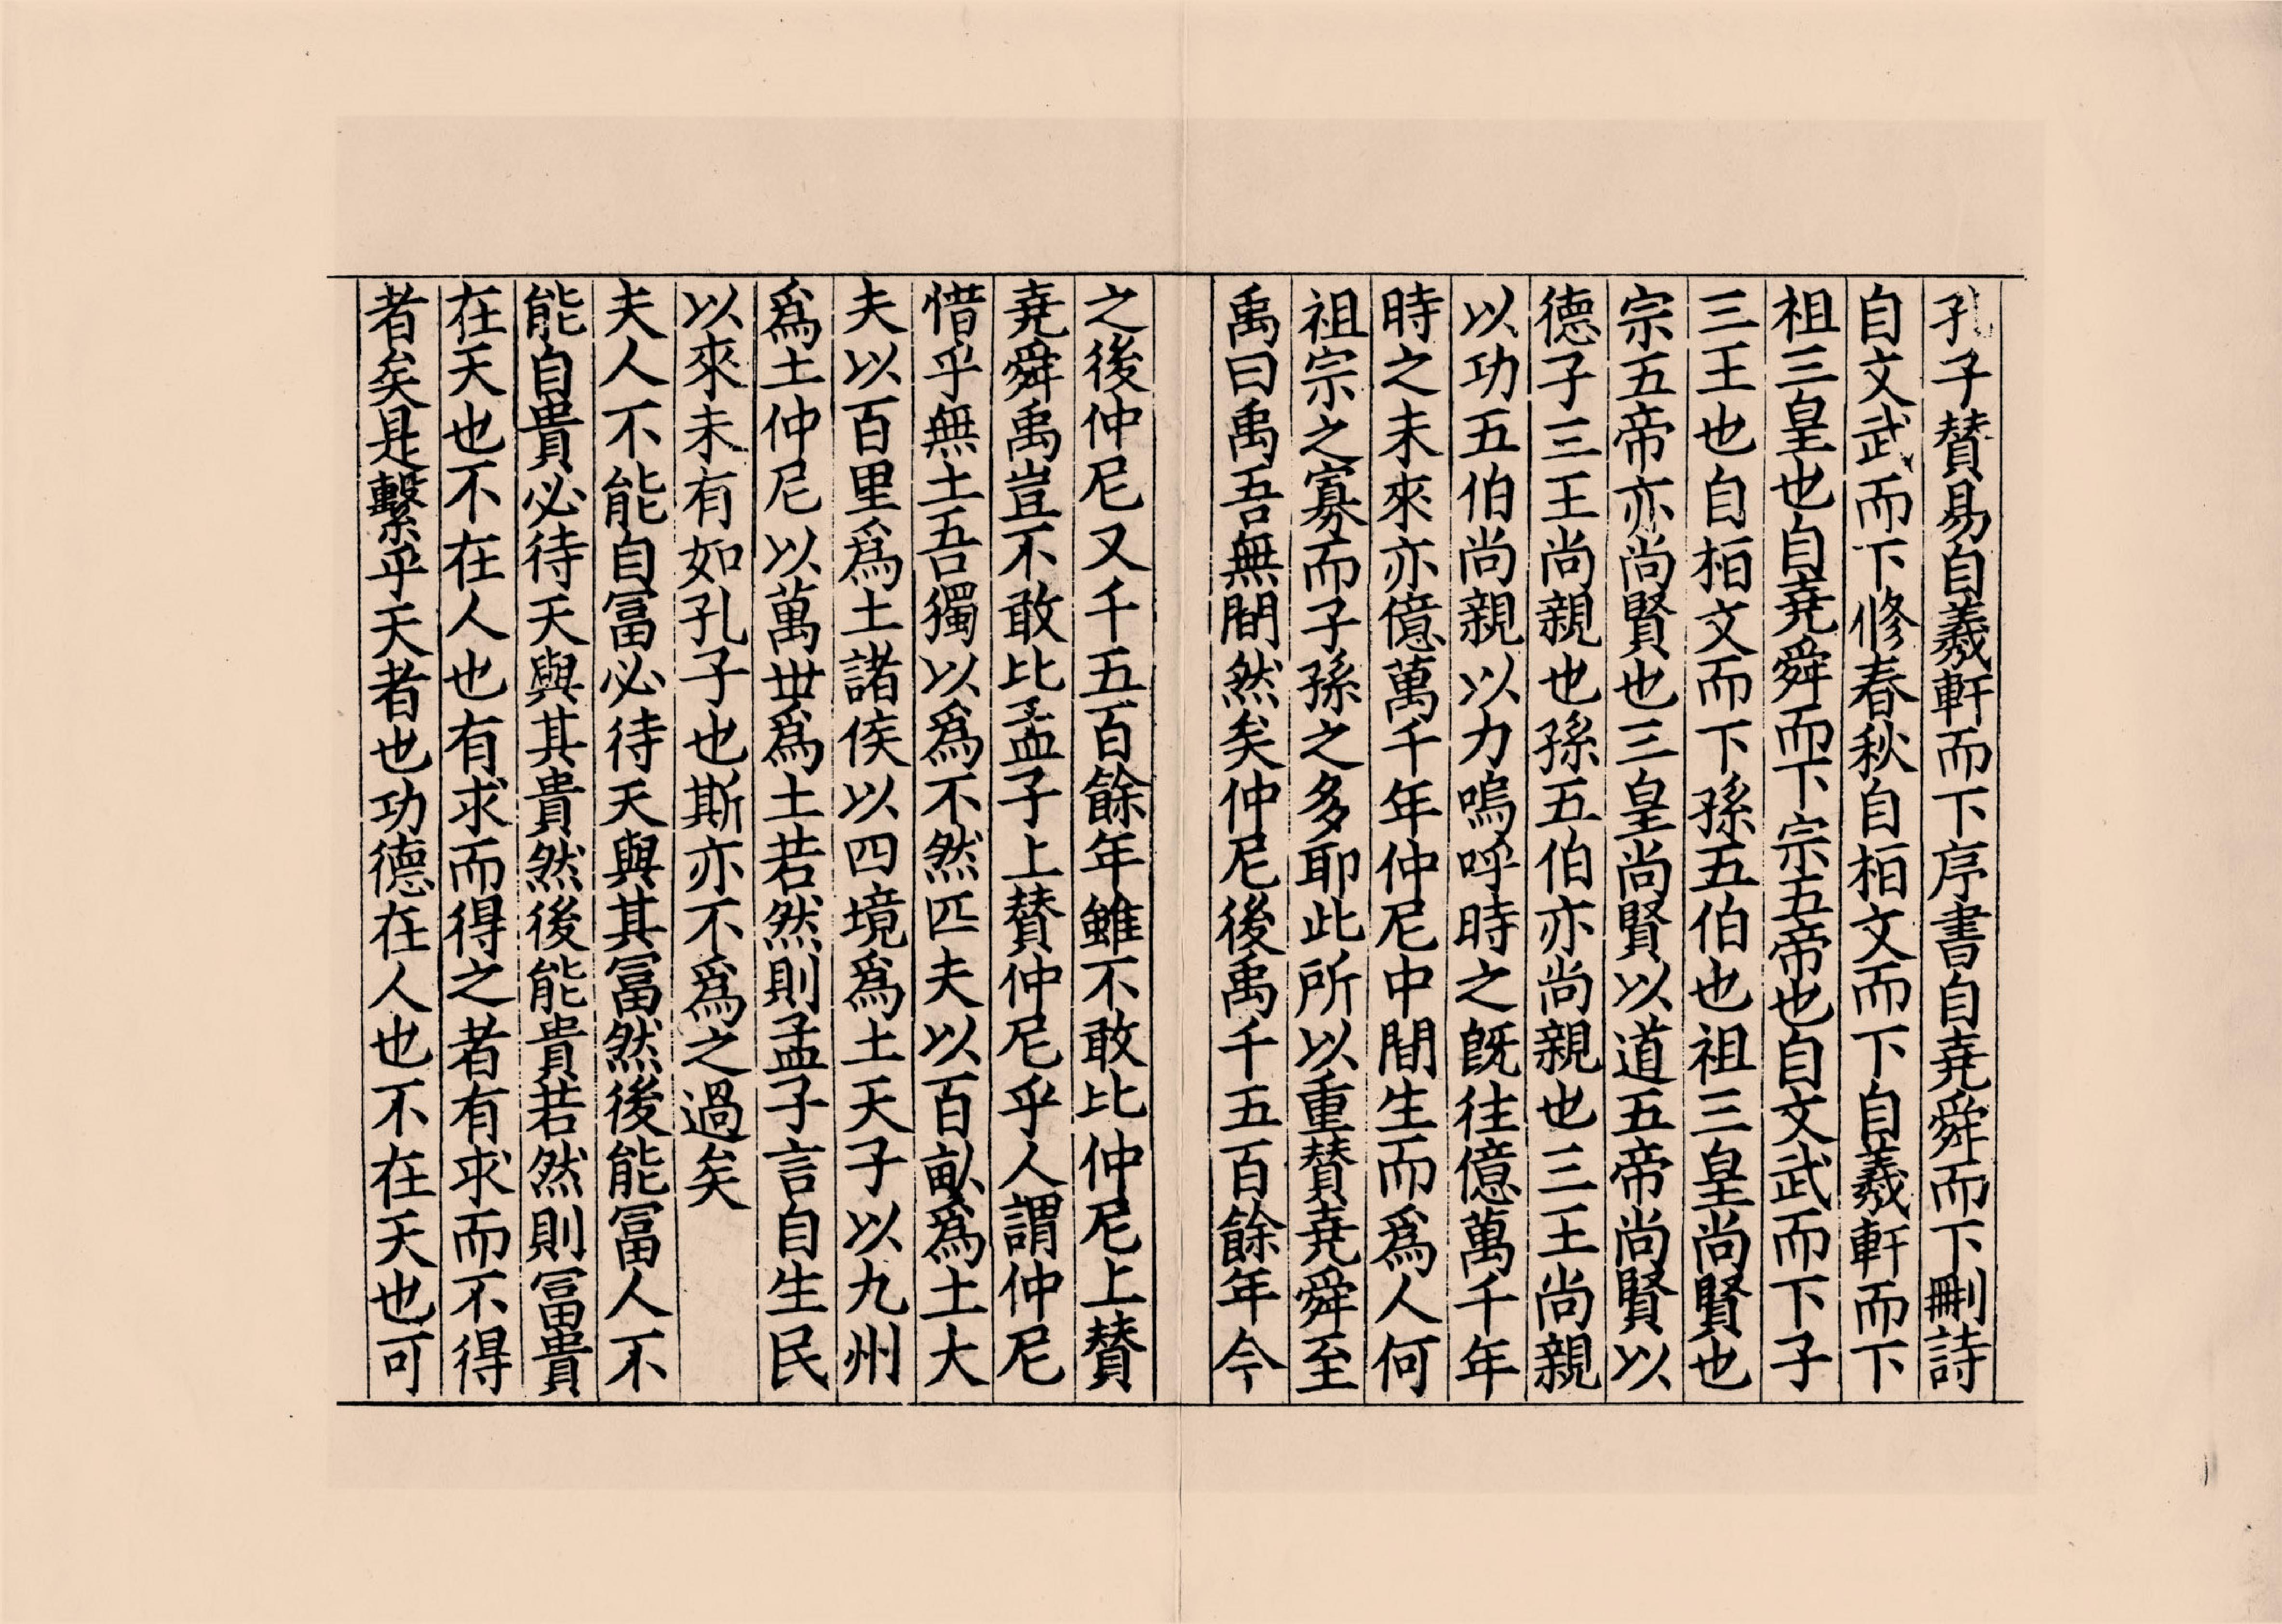 孔子賛易自羲軒而下序書自堯舜而下刪詩
自文武而下修春秋自桓文而下自羲軒而下
祖三皇也自堯舜而下宗五帝也自文武而下子
三王也自桓文而下孫五伯也祖三皇尚賢也
宗五帝亦尚賢也三皇尚賢以道五帝尚賢以
德子三王尚親也孫五伯亦尚親也三王尚親
以功五伯尚親以力嗚呼時之旣徃億萬千年
時之未來亦億萬千年仲尼中間生而爲人何
祖宗之寡而子孫之多耶此所以重賛堯舜至
禹曰禹吾無間然矣仲尼後禹千五百餘年今
之後仲尼又千五百餘年雖不敢比仲尼上賛
堯舜禹豈不敢比孟子上賛仲尼乎人謂仲尼
惜乎無土吾獨以爲不然匹夫以百畝爲土大
夫以百里爲土諸侯以四境爲土天子以九州
爲土仲尼以萬世爲土若然則孟子言自生民
以來未有如孔子也斯亦不爲之過矣
夫人不能自冨必待天與其冨然後能冨人不
能自貴必待天與其貴然後能貴若然則冨貴
在天也不在人也有求而得之者有求而不得
者矣是繫乎天者也功德在人也不在天也可